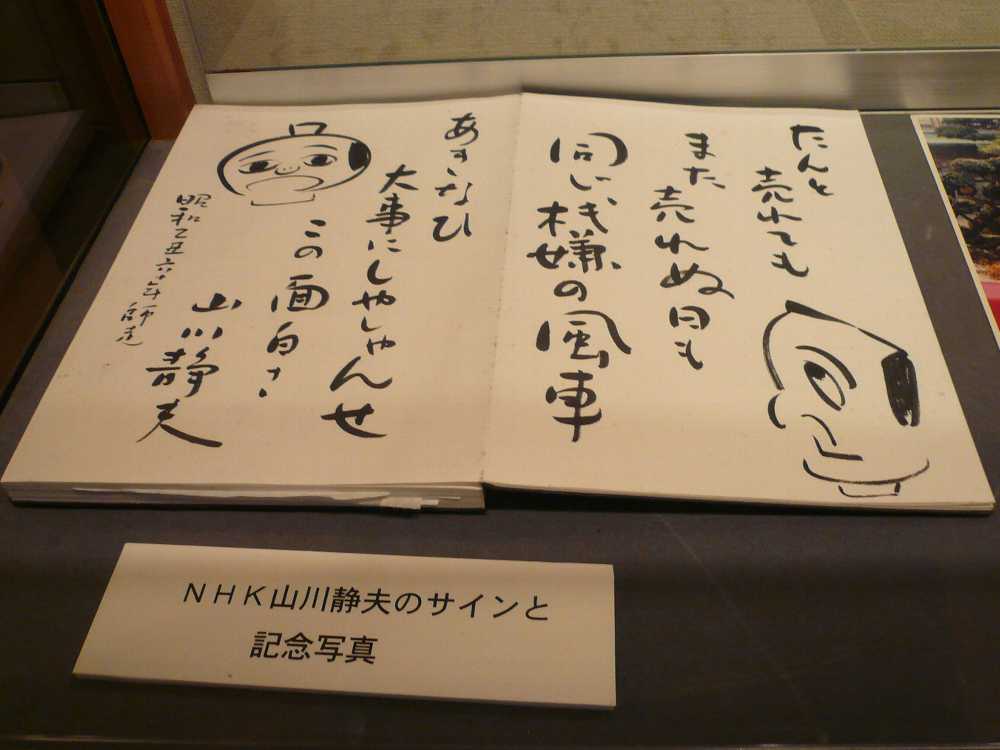 たんと
売れても
また
売れぬ日も
同じ機嫌の風車
あきなひ
大事にしやしやんせ
この面白さ
昭和乙丑六十年師走
山川静夫
NHK山川静夫のサインと
記念写真